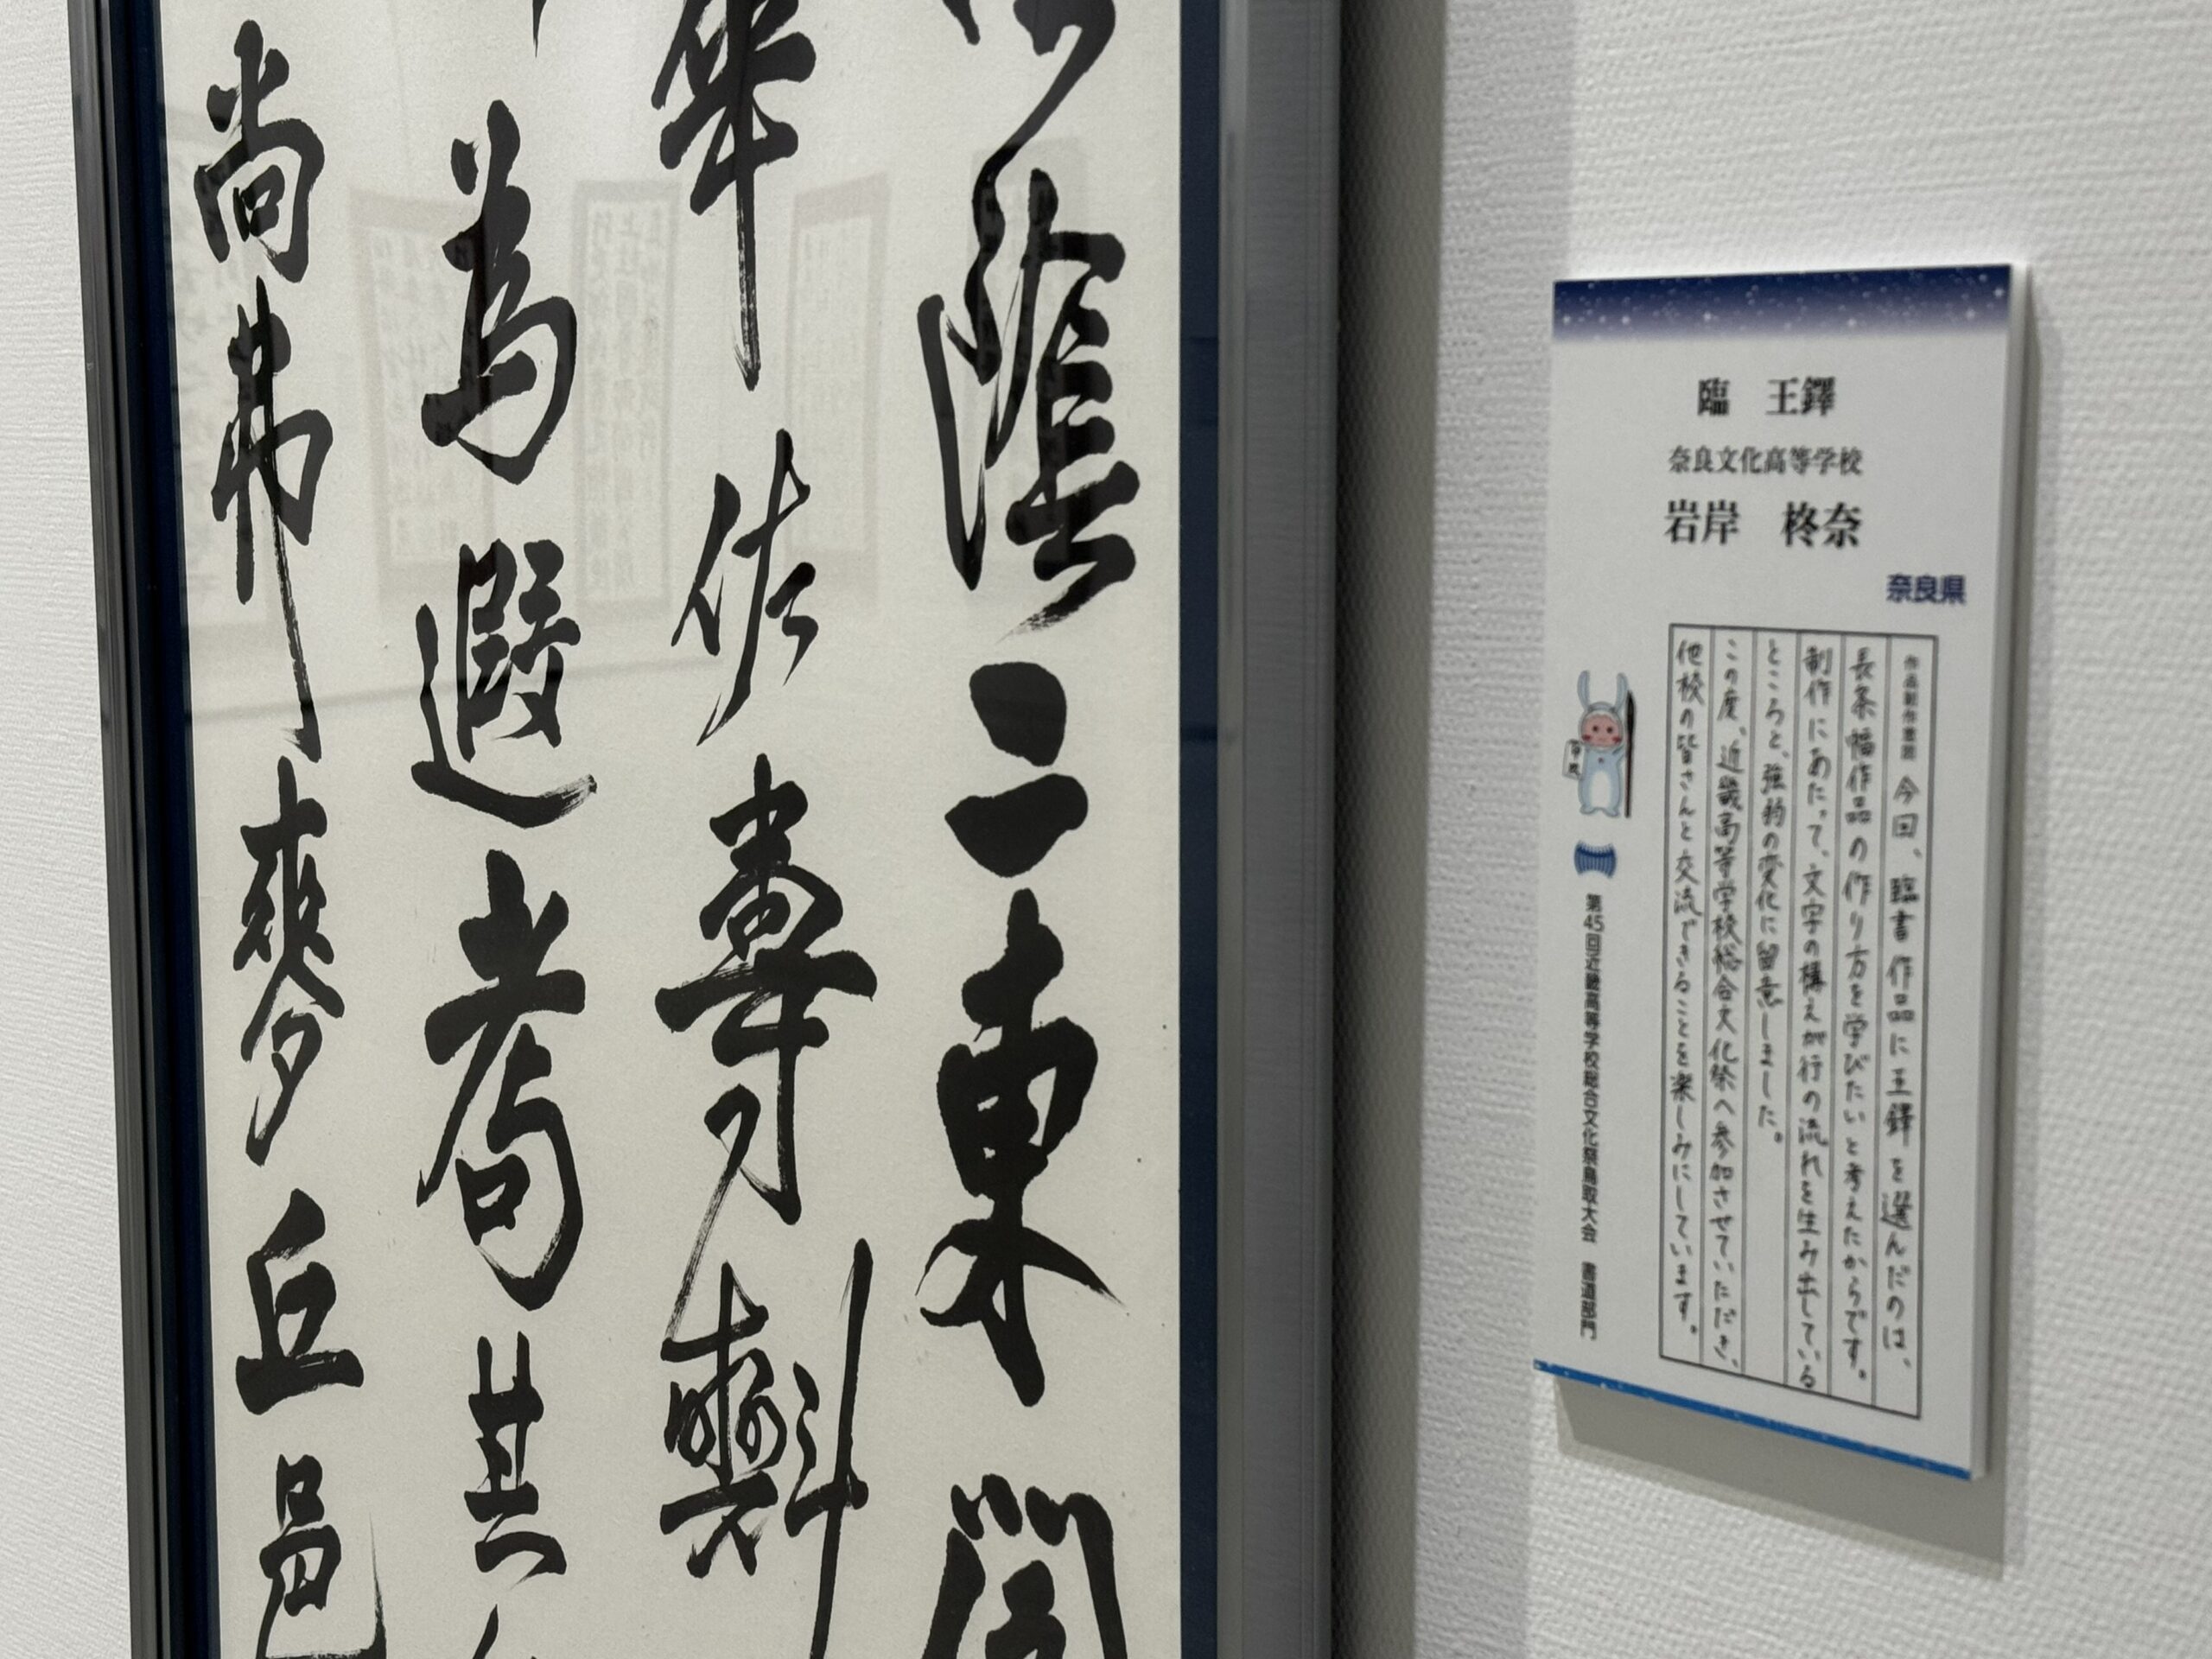 陰二東閣
佐尋𣂏
為遐耇其
尚弗爽丘邑
臨　王鐸
奈良文化高等学校
岩岸　柊奈
奈良県
作品制作意図　今回、臨書作品に王鐸を選んだのは、
長条幅作品の作り方を学びたいと考えたからです。
制作にあたって、文字の構えが行の流れを生み出している
ところと、強弱の変化に留意しました。
この度、近畿高等学校総合文化祭へ参加させていただき、
他校の皆さんと交流できることを楽しみにしています。
第45回近畿高等学校総合文化祭鳥取大会　書道部門